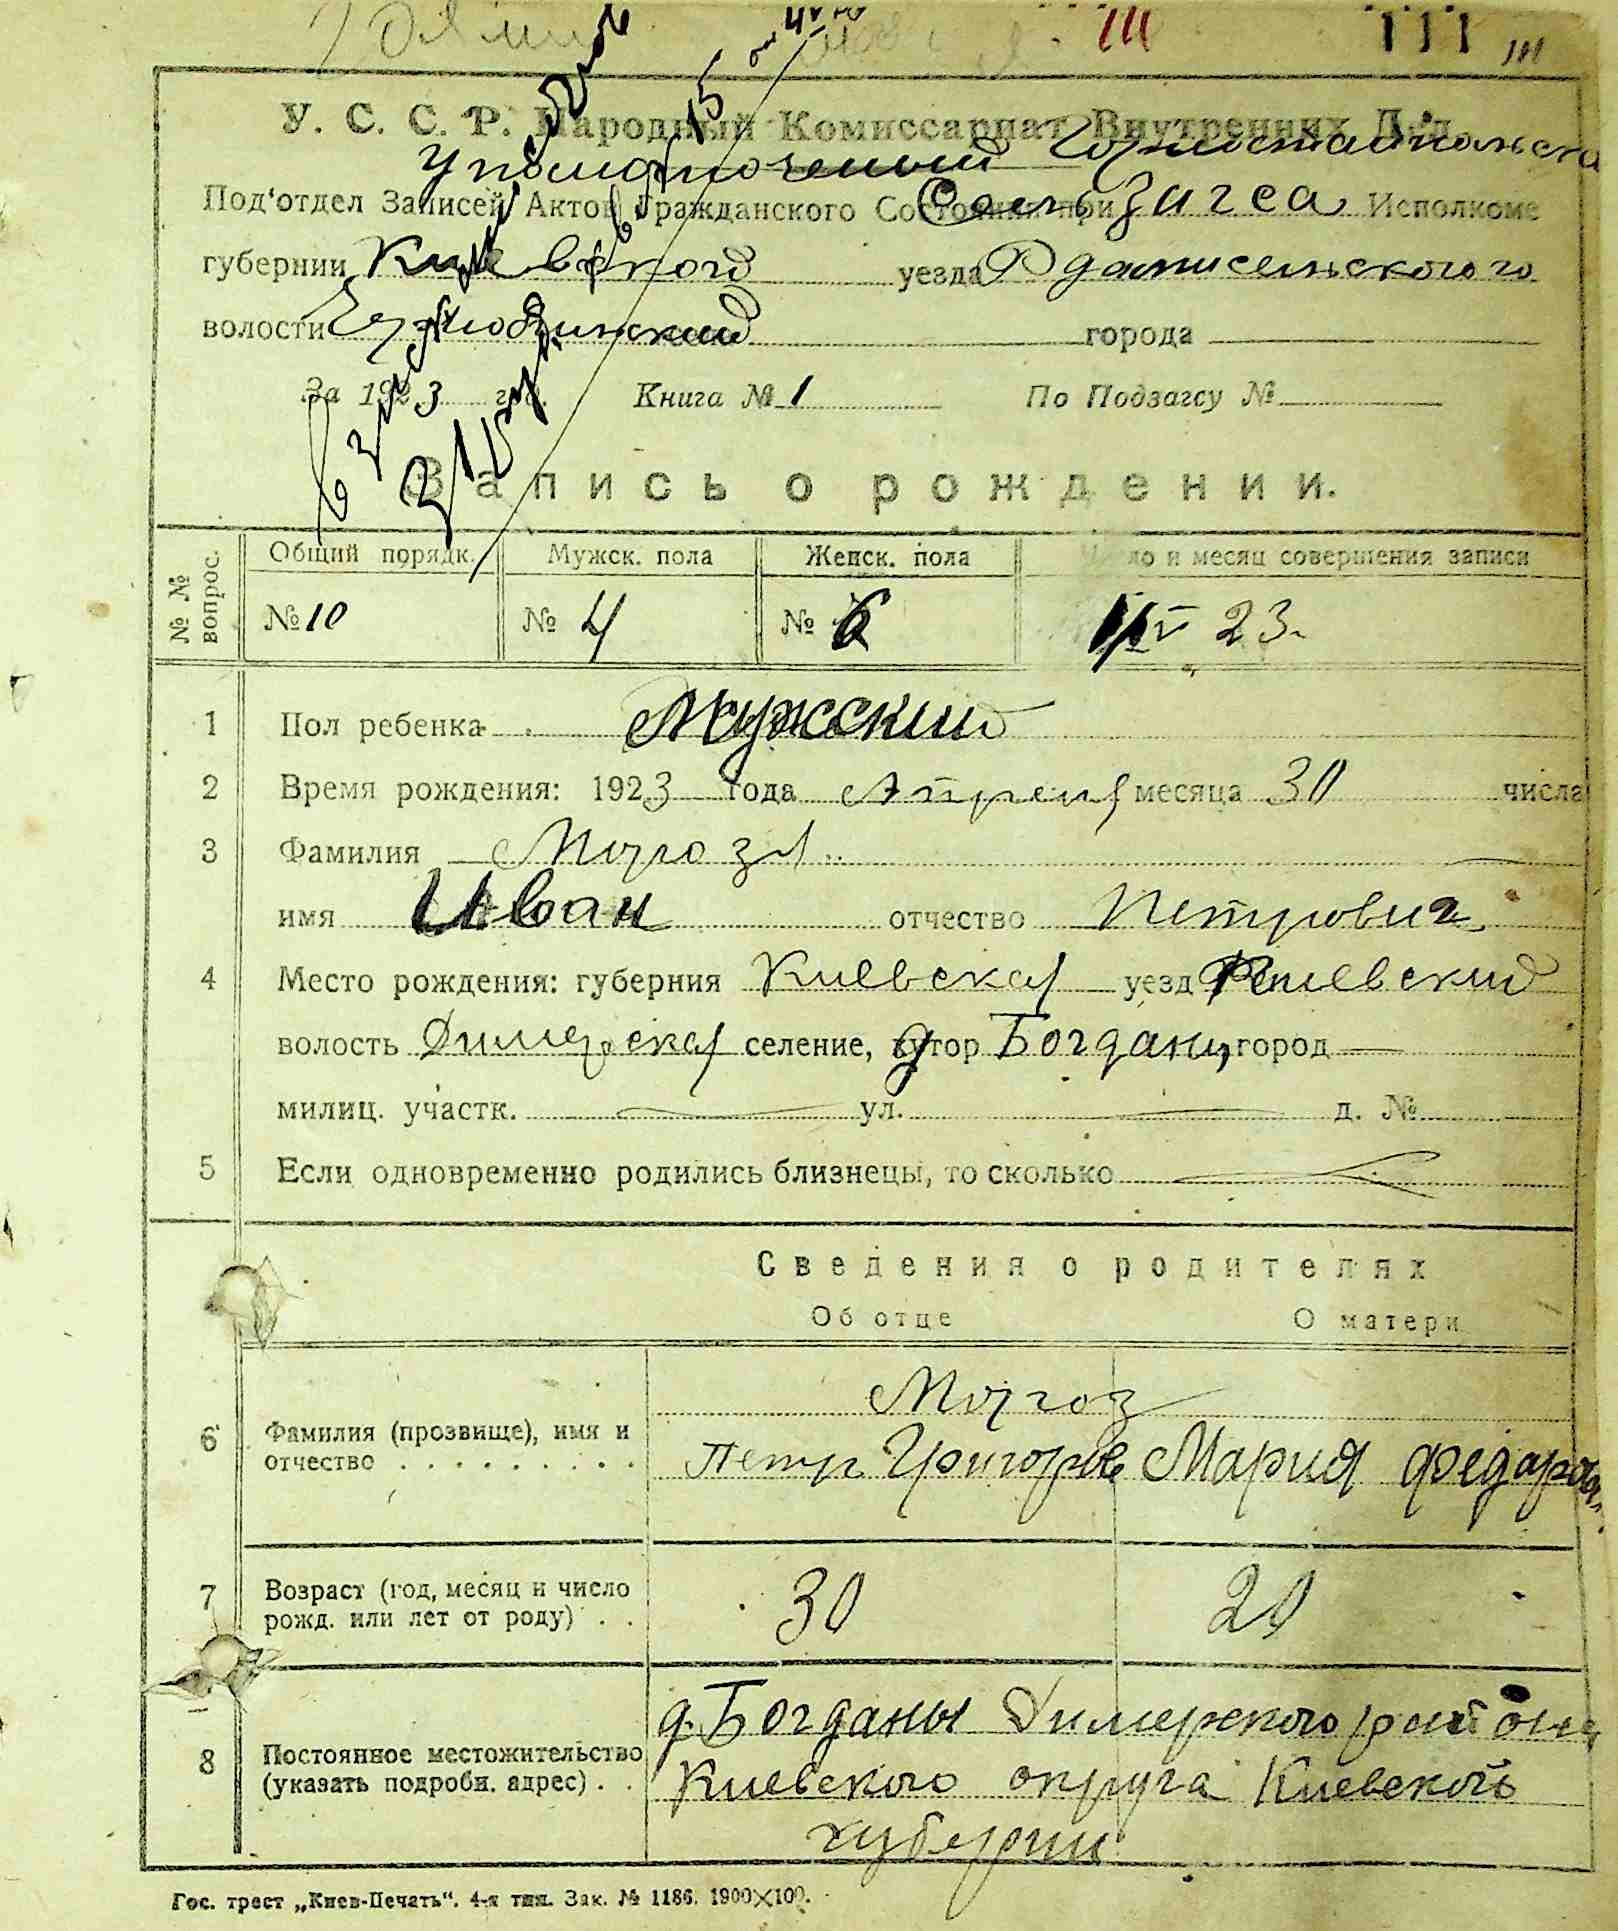 111
У. С. С. Р. Народный Комиссариат Внутренних Дел.
Под'отдел Записей Актов Гражданского Состояния при Загса Исполкоме
губернии Киевской уезда
волости города
За 1923 год. Книга № 1 По Подзагсу №
Запись о рождении.
№ № вопрос. Общий порядк. Мужск. пола Женск. пола Число и месяц совершения записи
№ 10 № 4 № 6 1/V 23.
1 Пол ребенка Мужский
2 Время рождения: 1923 года Апреля месяца 30 числа
3 Фамилия Мороз
имя Иван отчество Петрович
4 Место рождения: губерния Киевская уезд Киевский
волость Димерская селение, хутор Богданы город —
милиц. участк. — ул. — д. №
5 Если одновременно родились близнецы, то сколько —
Сведения о родителях
Об отце О матери
Мороз
6 Фамилия (прозвище), имя и отчество Петр Григоров Мария Федоровн.
7 Возраст (год, месяц и число рожд. или лет от роду) 30 20
8 Постоянное местожительство (указать подробн. адрес) д. Богданы Димерского района
Киевского округа Киевской
губернии
Гос. трест „Киев-Печать“. 4-я тип. Зак. № 1186. 1900×100.